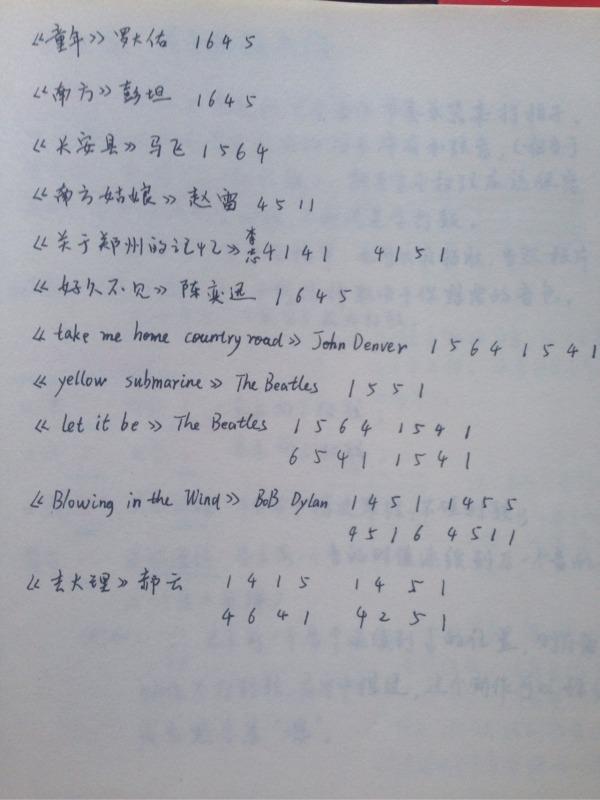 《童年》罗大佑 1 6 4 5
《南方》彭坦 1 6 4 5
《长安县》马飞 1 5 6 4
《南方姑娘》赵雷 4 5 1 1
《关于郑州的记忆》李志 4 1 4 1 4 1 5 1
《好久不见》陈奕迅 1 6 4 5
《take me home country road》John Denver 1 5 6 4 1 5 4 1
《yellow submarine》The Beatles 1 5 5 1
《let it be》The Beatles 1 5 6 4 1 5 4 1
6 5 4 1 1 5 4 1
《Blowing in the Wind》BoB Dylan 1 4 5 1 1 4 5 5
4 5 1 6 4 5 1 1
《去大理》郝云 1 4 1 5 1 4 5 1
4 6 4 1 4 2 5 1